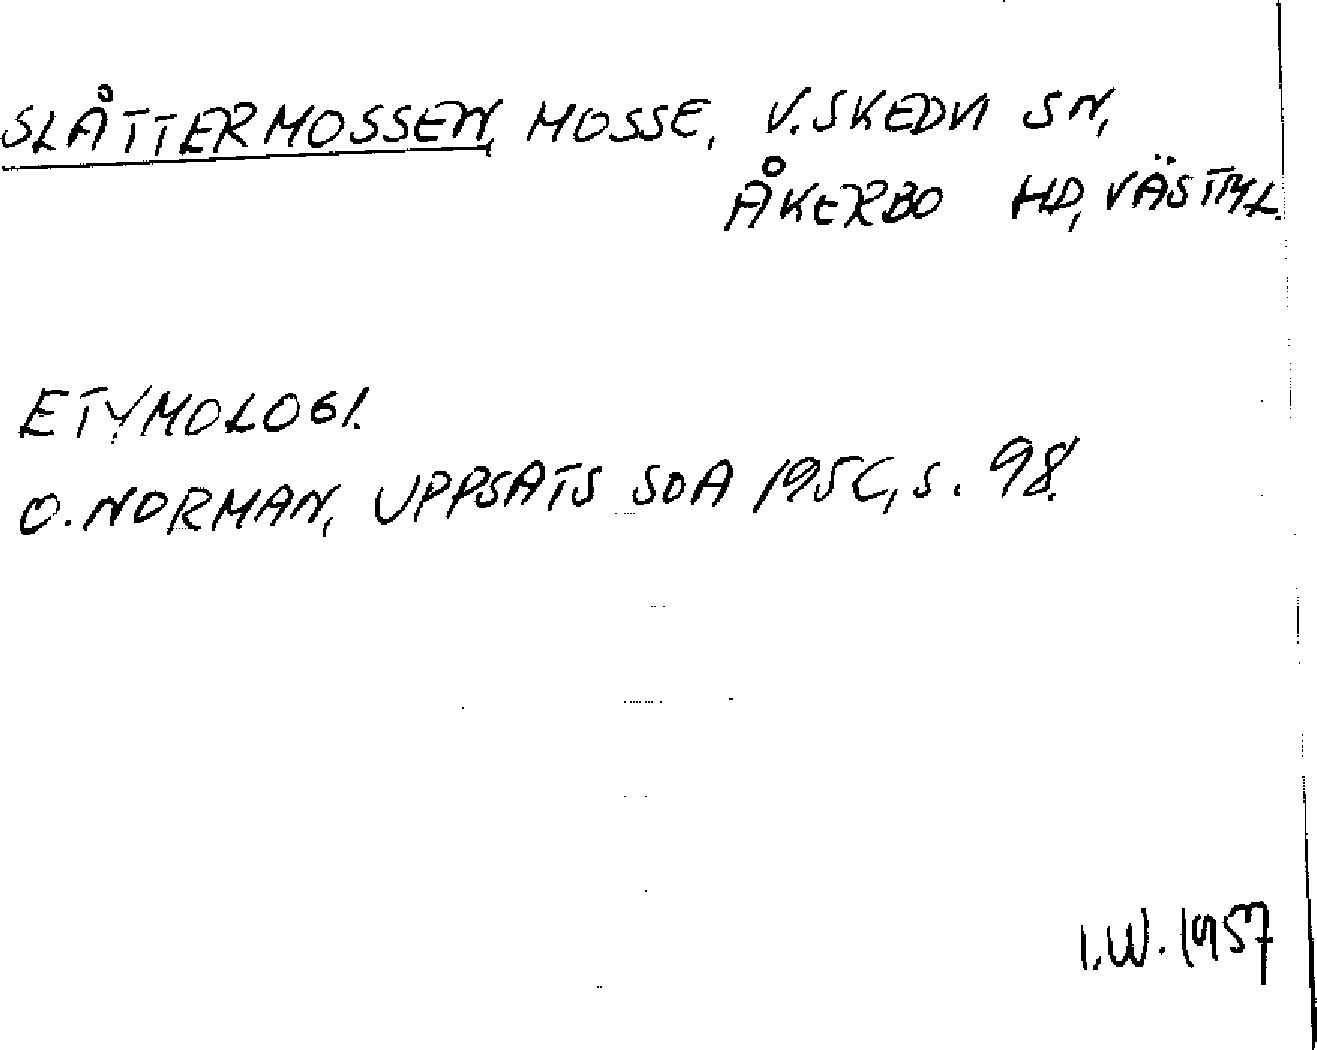 SLÅTTERMOSSEN, MOSSE, V. SKEDVI SN,
ÅKERBO HD, VÄSTML.
ETYMOLOGI.
O. NORMAN, UPPSATS SOA 1956, s. 98.
I.W. 1957